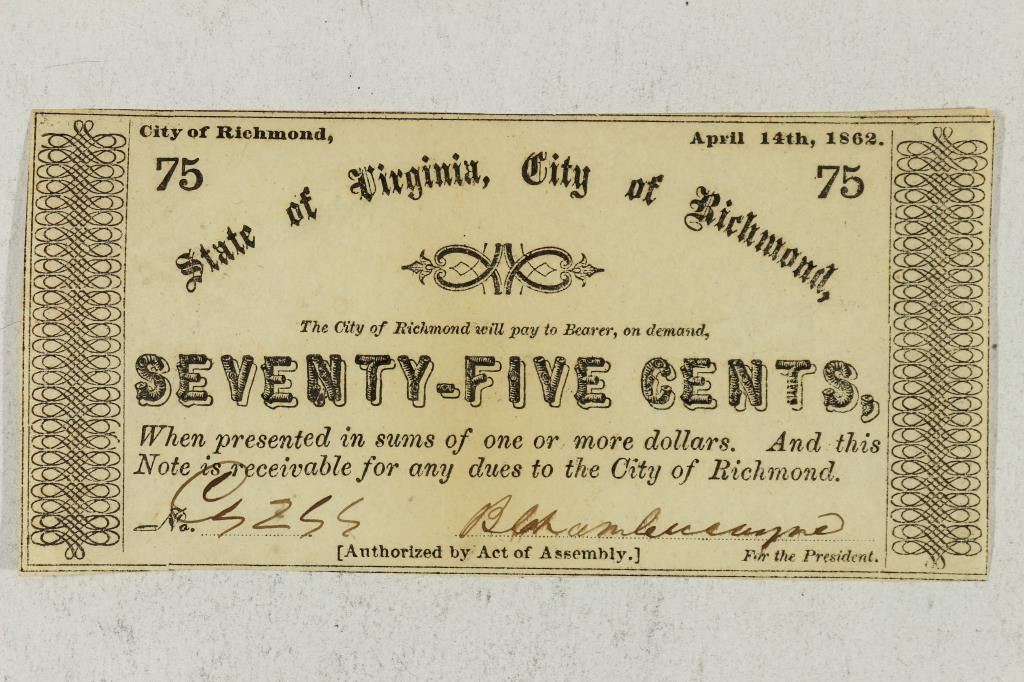 City of Richmond, April 14th, 1862.
75 75
State of Virginia, City of Richmond,
The City of Richmond will pay to Bearer, on demand,
SEVENTY-FIVE CENTS,
When presented in sums of one or more dollars. And this
Note is receivable for any dues to the City of Richmond.
No.
[Authorized by Act of Assembly.] For the President.